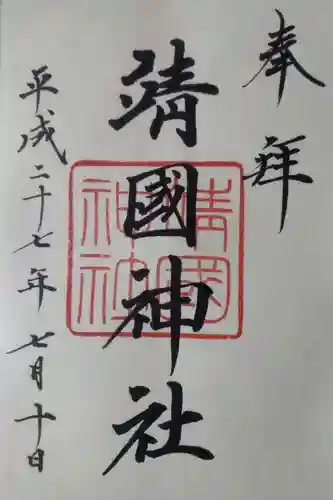 奉拜
靖國神社
靖國神社
平成二十七年七月十日